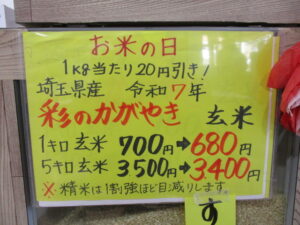 お米の日
1kg当たり20円引き!
埼玉県産 令和7年
彩のかがやき 玄米
1キロ玄米 700円→680円
5キロ玄米 3,500円→3,400円
※精米は1割強ほど目減りします。
す